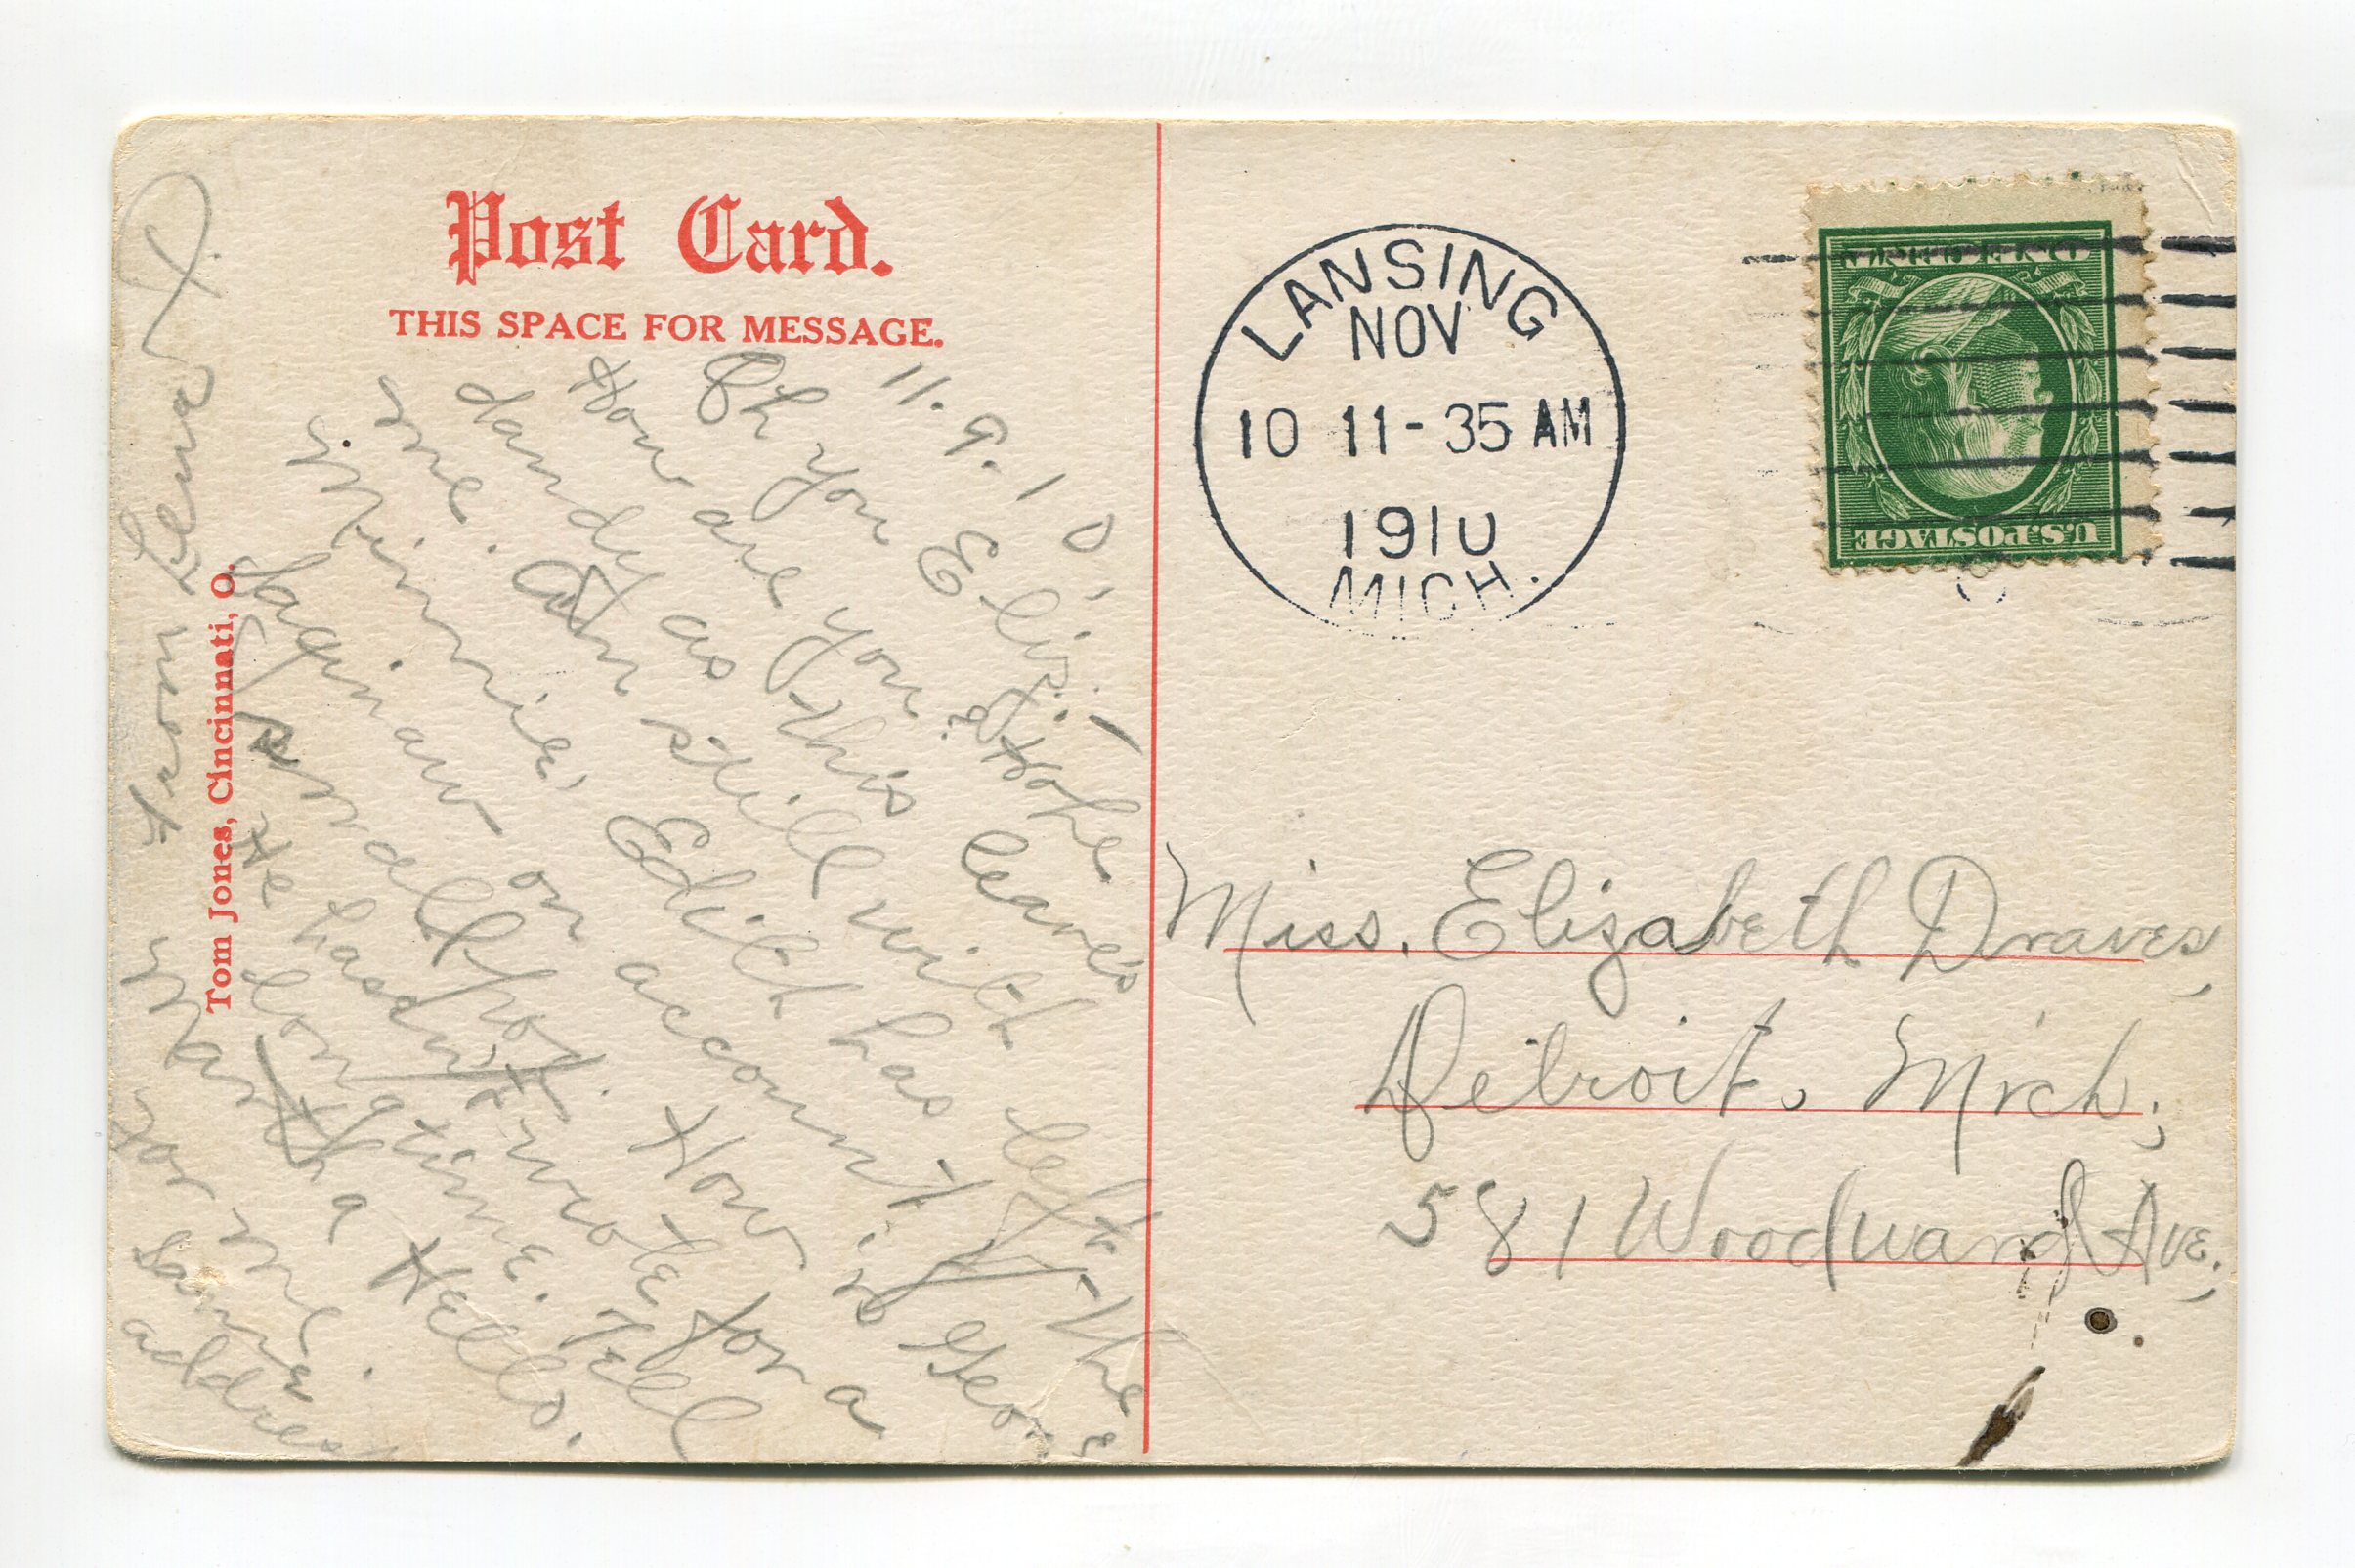 Post Card.
THIS SPACE FOR MESSAGE.
11.9.10,
Oh you Eliz.! –
How are you? Hope
dandy as this leaves
me. Am still with
Minnie, Edith has left
Saginaw on account of the
smallpox. How is George
He hasn't wrote for a
long time. Tell
Martha Hello.
for me.
Same
address
From Lena D.
Tom Jones, Cincinnati, O.
LANSING
NOV
10 11-35 AM
1910
MICH.
U.S. POSTAGE
Miss. Elizabeth Draves,
Detroit, Mich.;
581 Woodward Ave.,